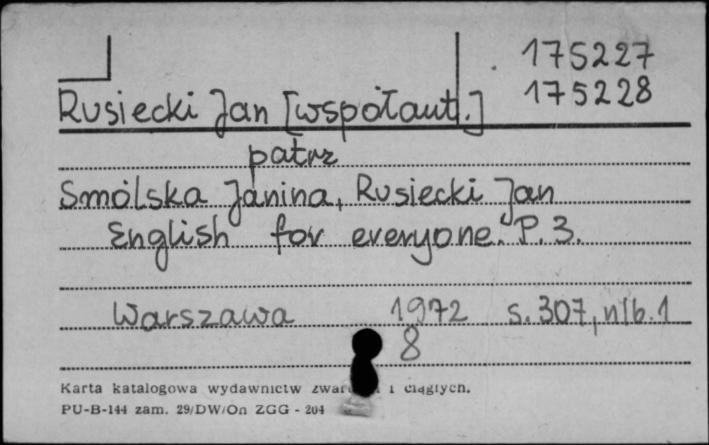 175227
175228
Rusiecki Jan [współaut.]
patrz
Smólska Janina, Rusiecki Jan
English for everyone. P. 3.
Warszawa 1972 s. 307, nlb. 1
8
Karta katalogowa wydawnictw i ciągłych.
PU-B-144 zam. 29/DW/On ZGG - 204